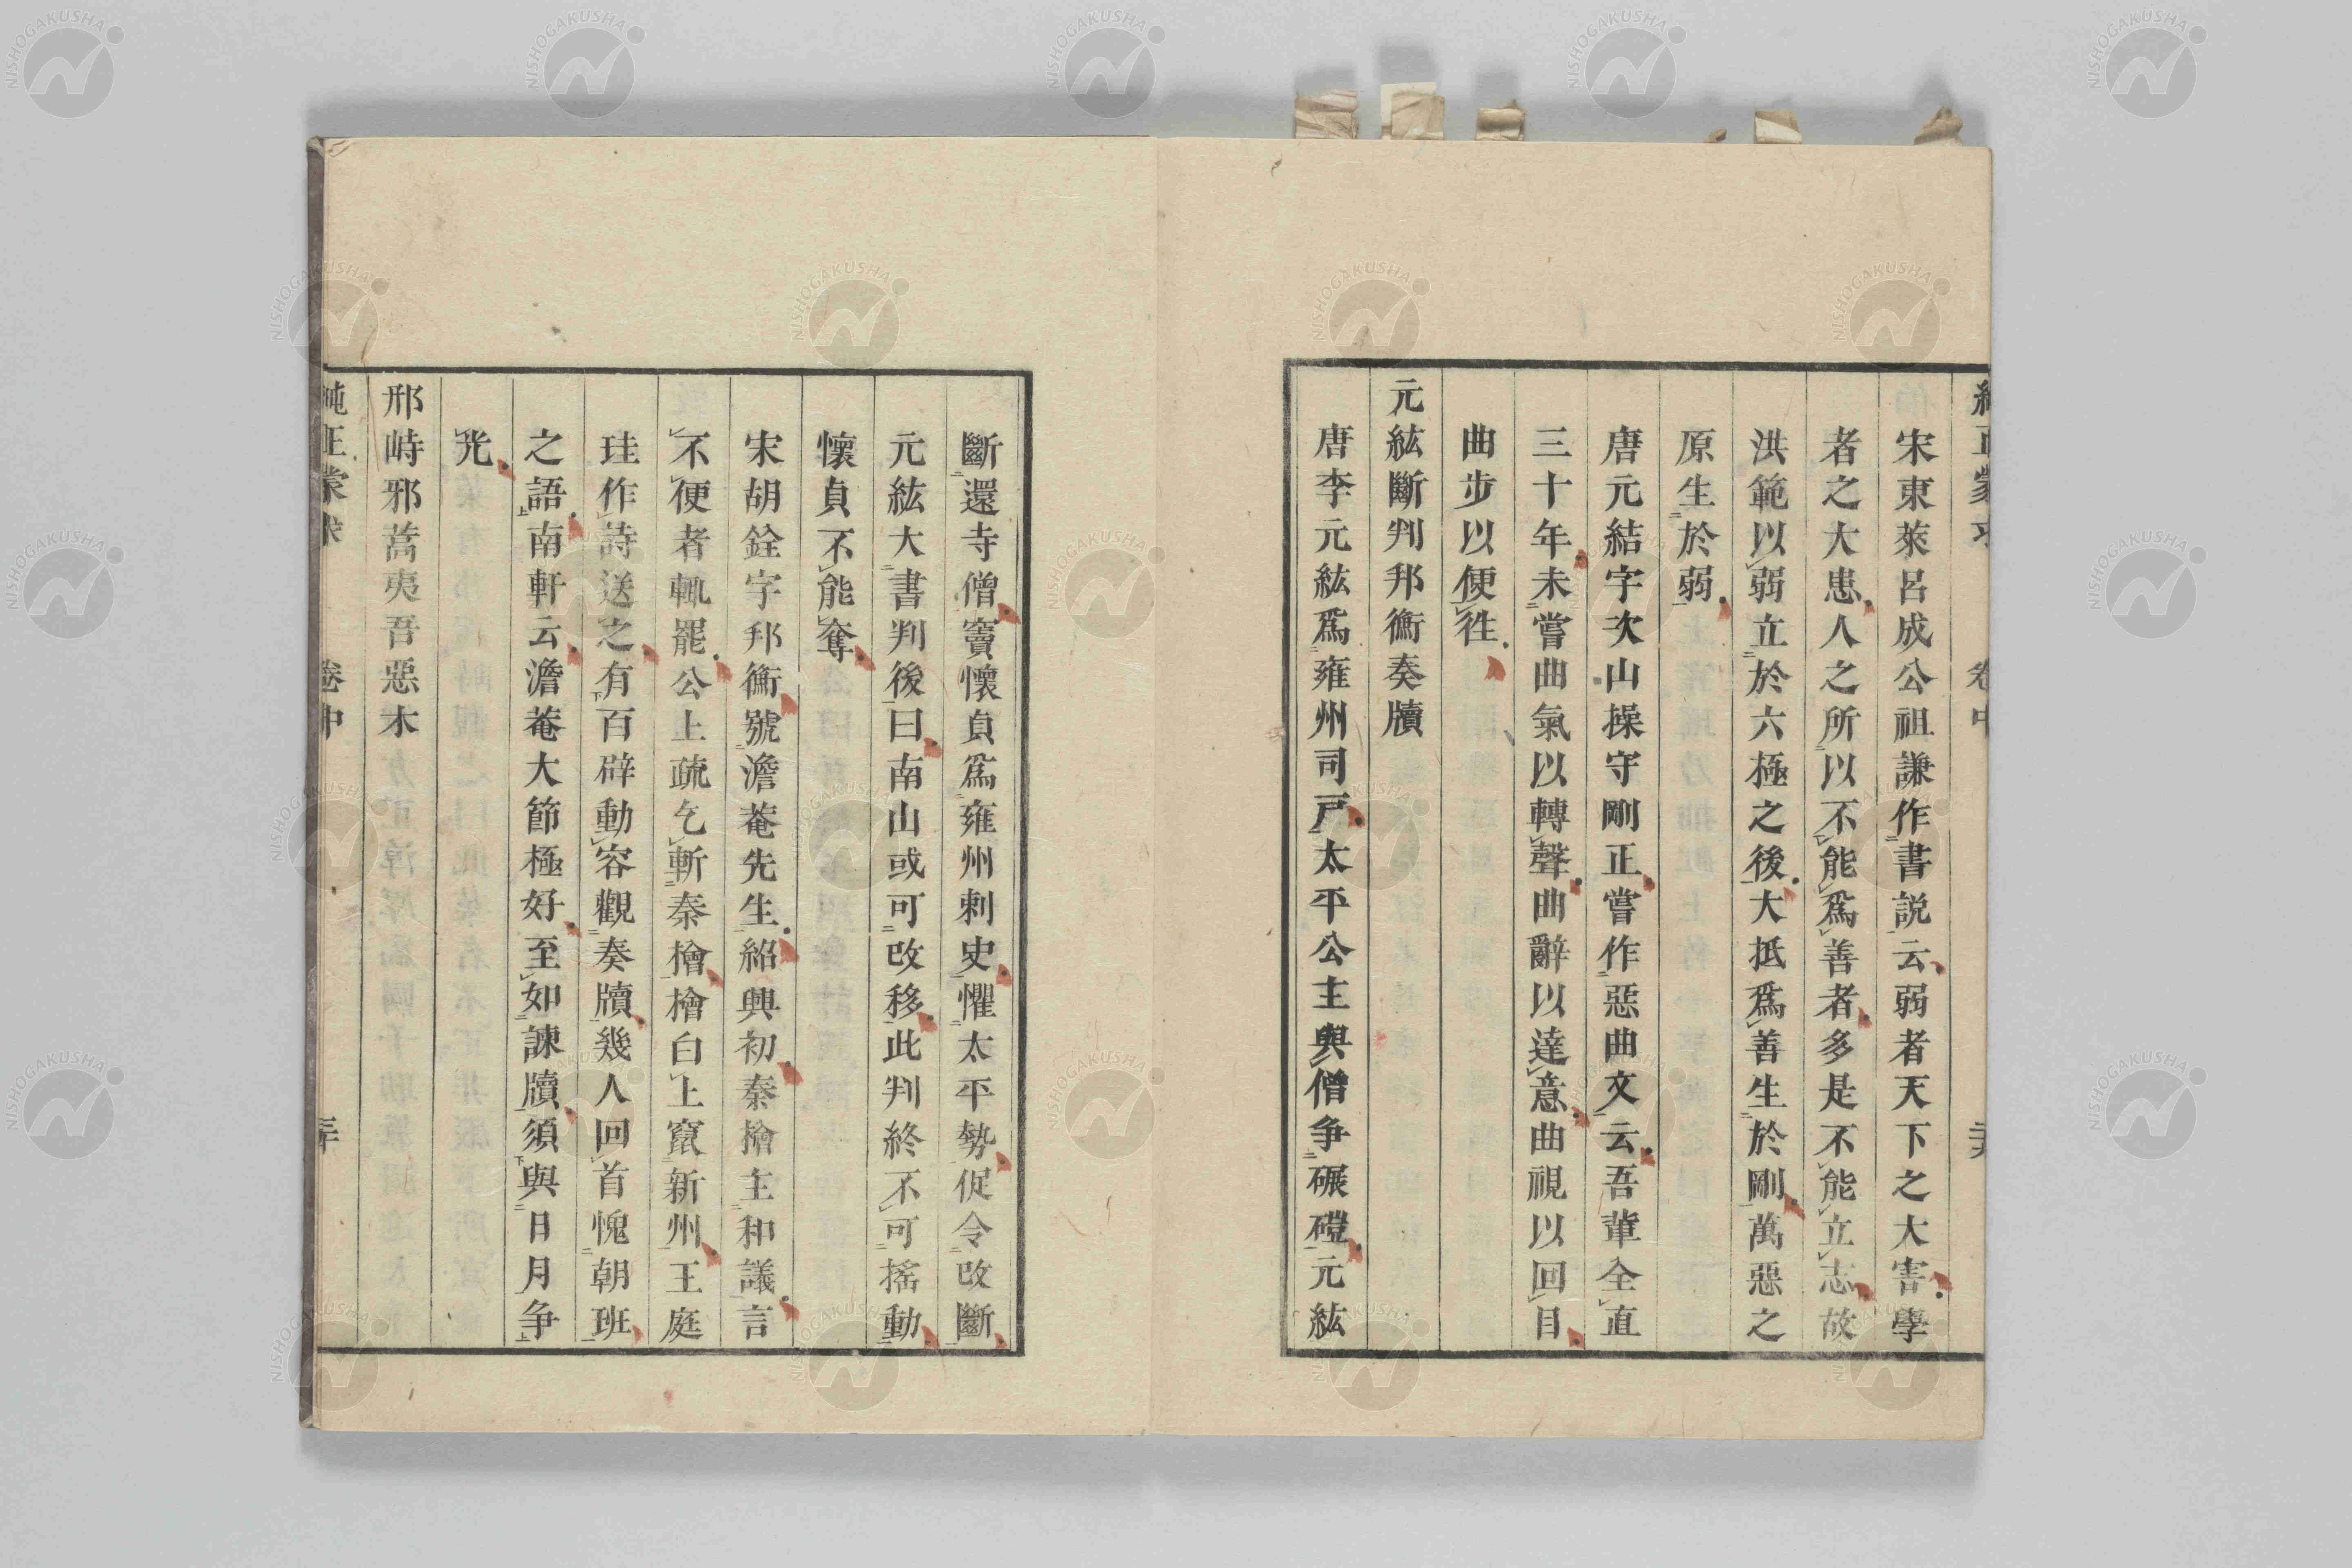 宋東萊呂成公祖謙作書説云弱者天下之大害學
者之大患人之所以不能爲善者多是不能立志故
洪範以弱立於六極之後大抵爲善生於剛萬惡之
原生於弱
唐元結字次山操守剛正嘗作惡曲文云吾輩全直
三十年未嘗曲氣以轉聲曲辭以達意曲視以回目
曲步以便徃
元紘斷判邦衡奏牘
唐李元紘爲雍州司戸太平公主與僧争碾磑元紘
斷還寺僧竇懷貞爲雍州刺史懼太平勢促令改斷
元紘大書判後曰南山或可改移此判終不可搖動
懷貞不能奪
宋胡銓字邦衡號澹菴先生紹興初秦檜主和議言
不便者輒罷公上疏乞斬秦檜檜白上竄新州王庭
珪作詩送之有百辟動容觀奏牘幾人回首愧朝班
之語南軒云澹菴大節極好至如諫牘須與日月争
光
邢峙邪蒿夷吾惡木
純正蒙求 卷中
NISHOGAKUSHA